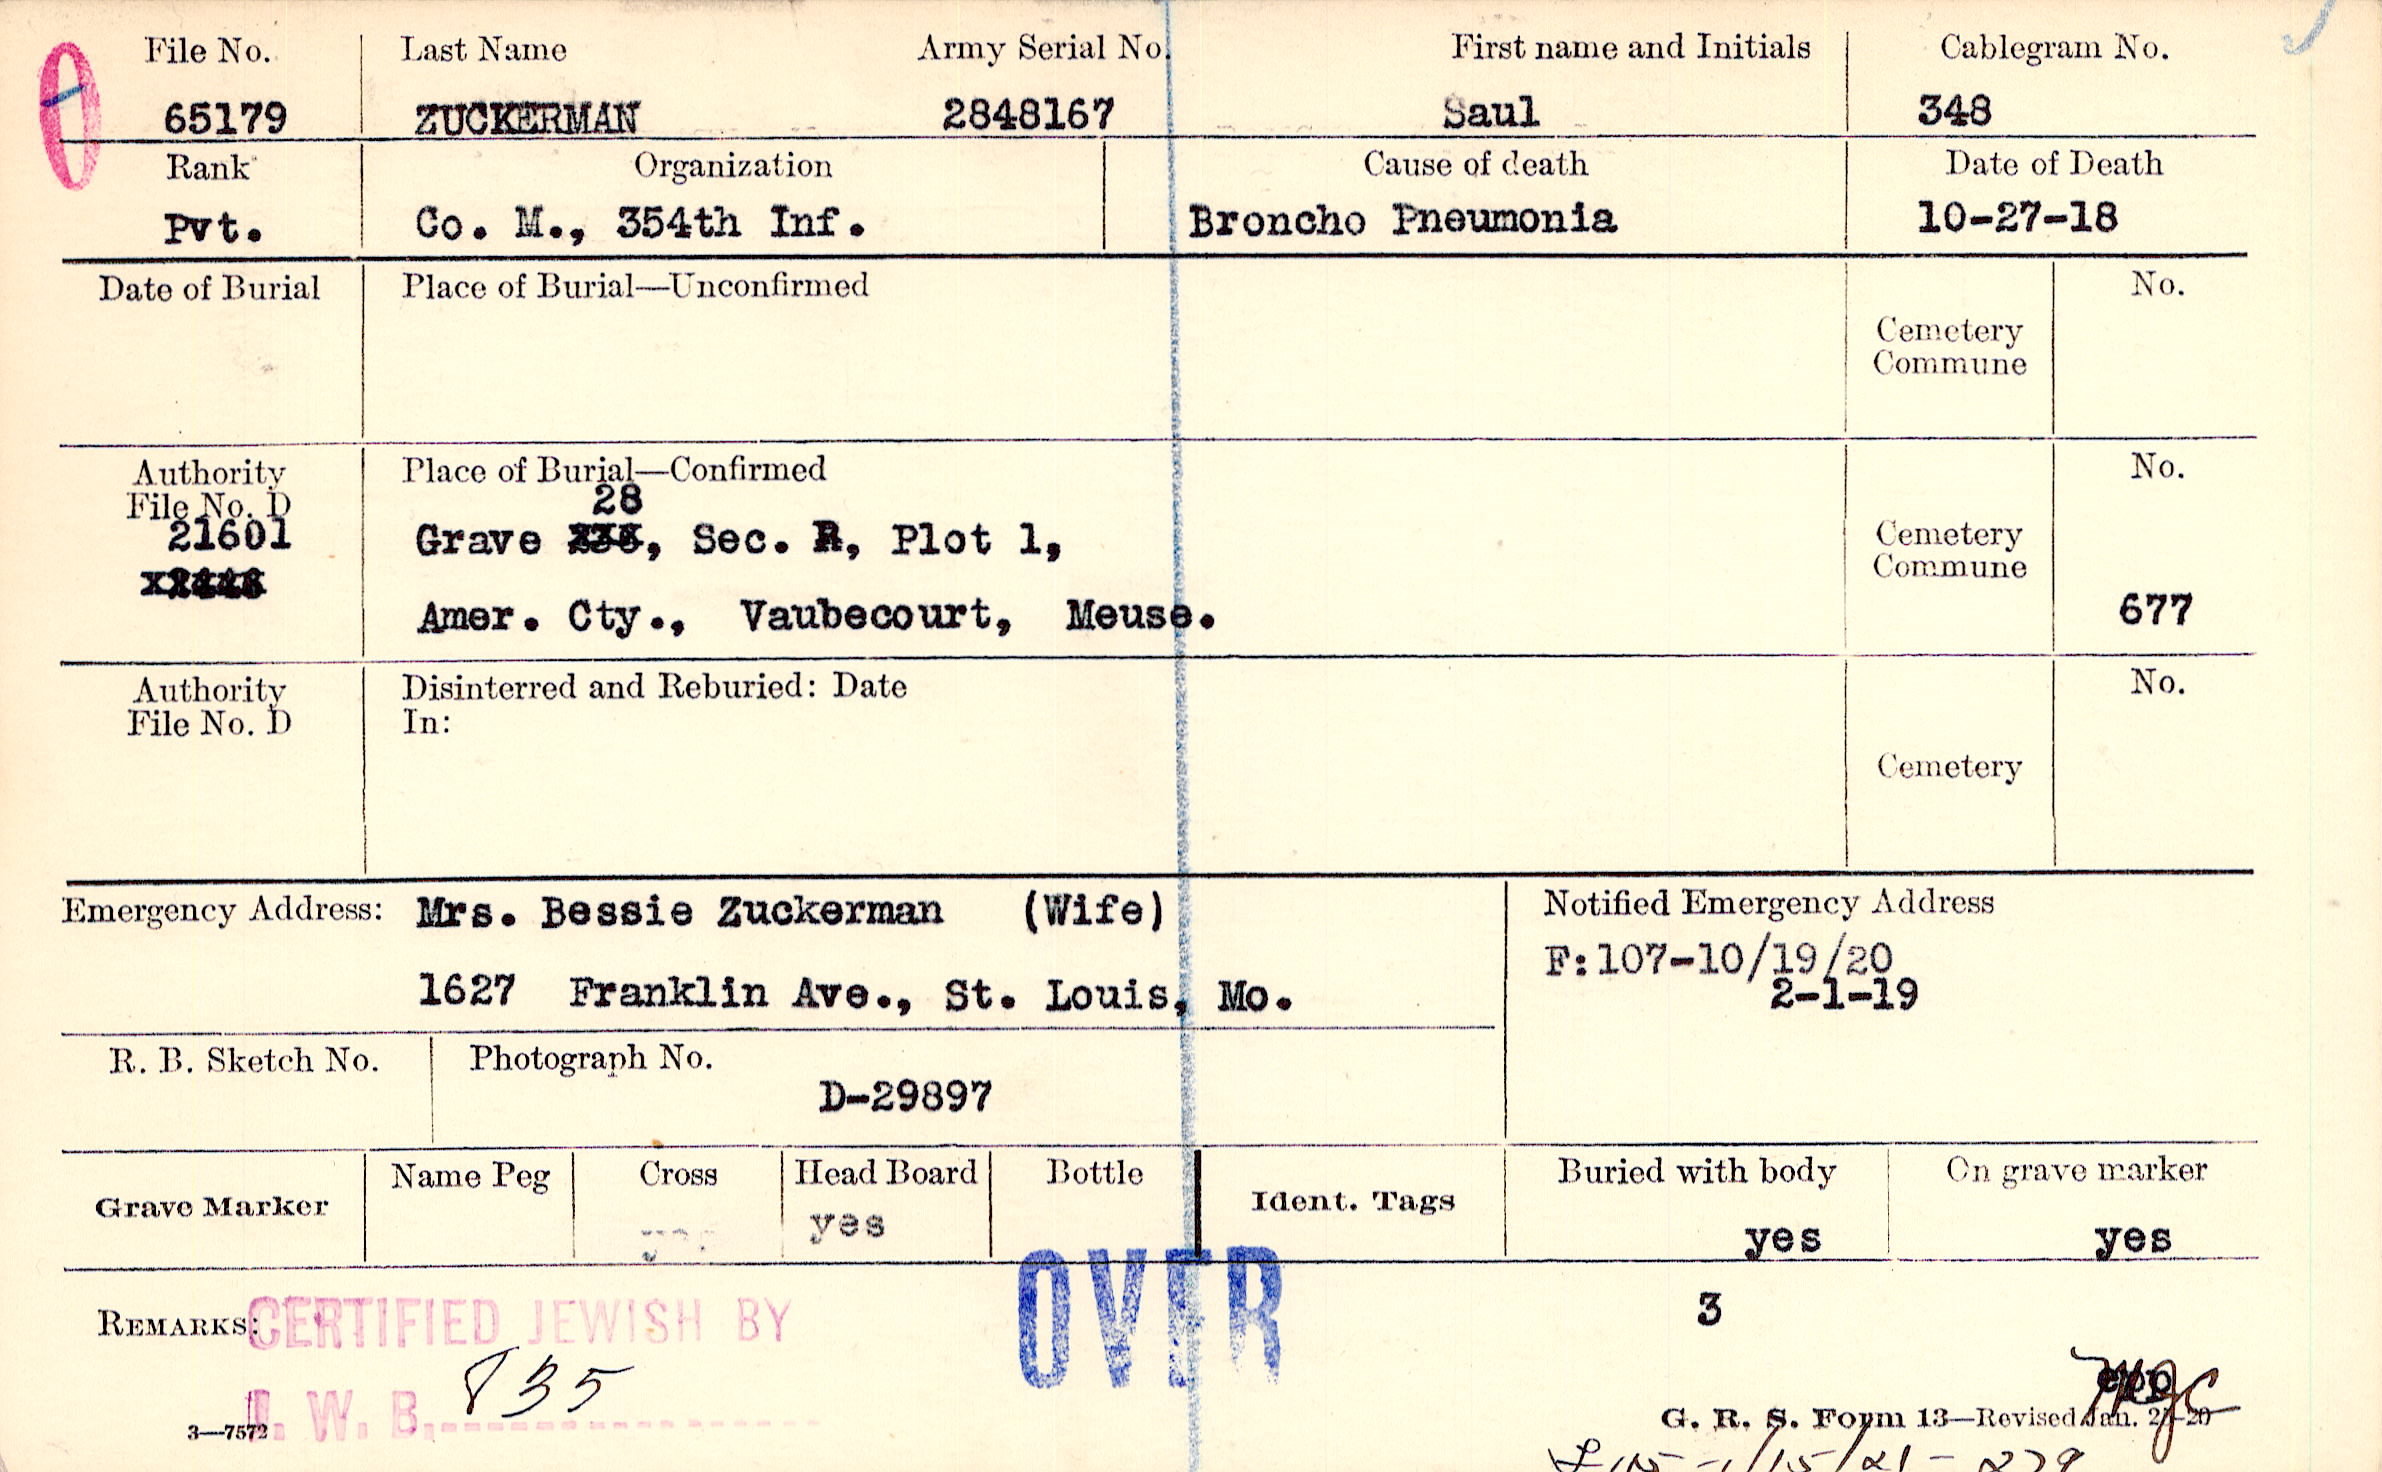 File No. Last Name Army Serial No. First name and Initials Cablegram No.
65179 ZUCKERMAN 2848167 Saul 348
Rank Organization Cause of death Date of Death
Pvt. Co. M., 354th Inf. Broncho Pneumonia 10-27-18
Date of Burial Place of Burial—Unconfirmed No.
Cemetery
Commune
Authority Place of Burial—Confirmed No.
File No. D 28
21601 Grave , Sec. R, Plot 1, Cemetery
Commune
Amer. Cty., Vaubecourt, Meuse. 677
Authority Disinterred and Reburied: Date No.
File No. D In:
Cemetery
Emergency Address: Mrs. Bessie Zuckerman (Wife) Notified Emergency Address
F:107-10/19/20
1627 Franklin Ave., St. Louis, Mo. 2-1-19
R. B. Sketch No. Photograph No.
D-29897
Grave Marker Name Peg Cross Head Board Bottle Ident. Tags Buried with body On grave marker
yes yes yes
OVER
REMARKS: CERTIFIED JEWISH BY 3
J. W. B. 835
3—7572 G. R. S. Form 13—Revised Jan.